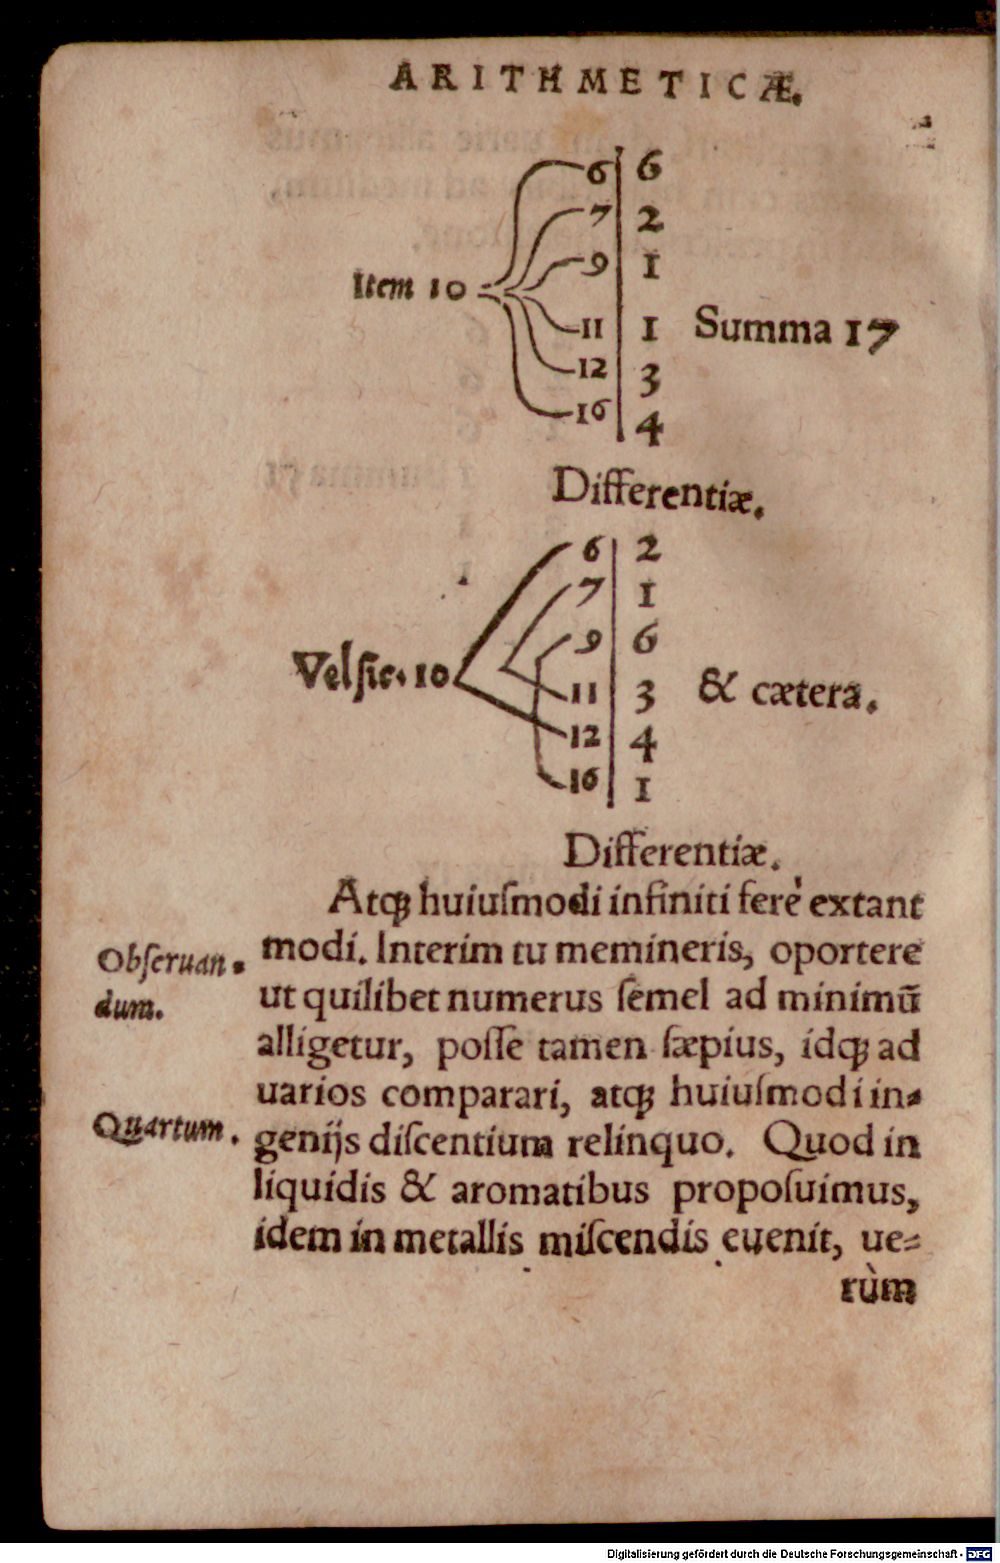 ARITHMETICÆ.
6 | 6
7 | 2
9 | 1
Item 10
11 | 1 Summa 17
12 | 3
16 | 4
Differentiæ.
6 | 2
7 | 1
9 | 6
Vel sic. 10
11 | 3 & cætera.
12 | 4
16 | 1
Differentiæ.
Atqꝫ huiuſmodi infiniti ferè extant
modi. Interim tu memineris, oportere
Obſeruan
dum.
ut quilibet numerus ſemel ad minimū
alligetur, poſſe tamen ſæpius, idqꝫ ad
uarios comparari, atqꝫ huiuſmodi in-
Quartum.
genijs diſcentium relinquo. Quod in
liquidis & aromatibus propoſuimus,
idem in metallis miſcendis euenit, ue-
rùm
Digitalisierung gefördert durch die Deutsche Forschungsgemeinschaft - DFG